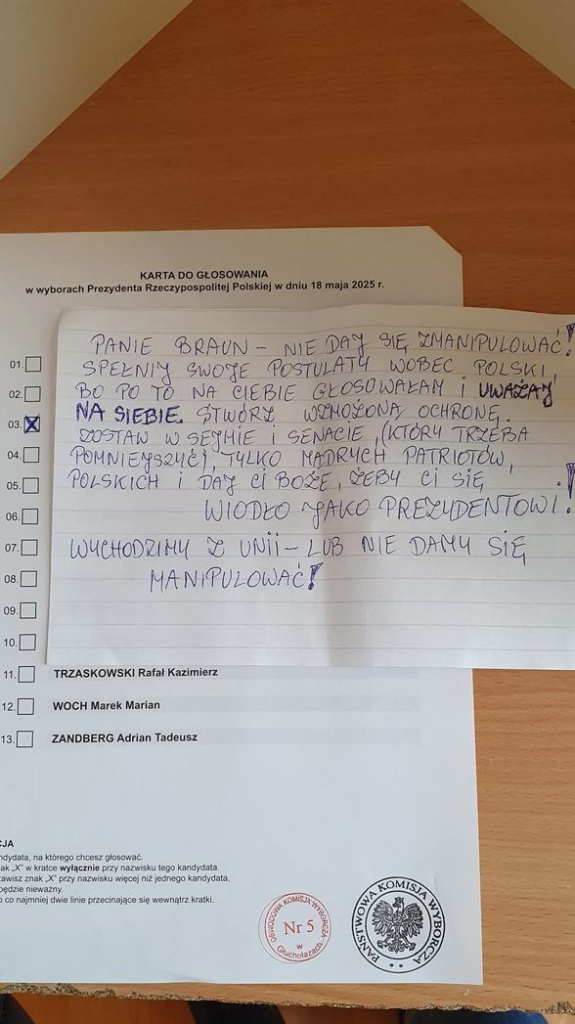 KARTA DO GŁOSOWANIA
w wyborach Prezydenta Rzeczypospolitej Polskiej w dniu 18 maja 2025 r.
PANIE BRAUN – NIE DAJ SIĘ ZMANIPULOWAĆ!
01.
SPEŁNIJ SWOJE POSTULATY WOBEC POLSKI,
02.
BO PO TO NA CIEBIE GŁOSOWAŁAM i UWAŻAJ
03. X
NA SIEBIE. STWÓRZ WZMOŻONĄ OCHRONĘ.
ZOSTAW W SEJMIE i SENACIE, (KTÓRY TRZEBA
04.
POMNIEJSZYĆ), TYLKO MĄDRYCH PATRIOTÓW,
05.
POLSKICH i DAJ CI BOŻE, ŻEBY CI SIĘ
06.
WIODŁO JAKO PREZYDENTOWI!
07.
WYCHODZIMY Z UNII – LUB NIE DAMY SIĘ
08.
MANIPULOWAĆ!
09.
10.
11. TRZASKOWSKI Rafał Kazimierz
12. WOCH Marek Marian
13. ZANDBERG Adrian Tadeusz
CJA
ndydata, na którego chcesz głosować.
ak „X” w kratce wyłącznie przy nazwisku tego kandydata.
tawisz znak „X” przy nazwisku więcej niż jednego kandydata,
będzie nieważny.
o co najmniej dwie linie przecinające się wewnątrz kratki.
OBWODOWA KOMISJA WYBORCZA
Nr 5
w
Głuchołazach
PAŃSTWOWA KOMISJA WYBORCZA